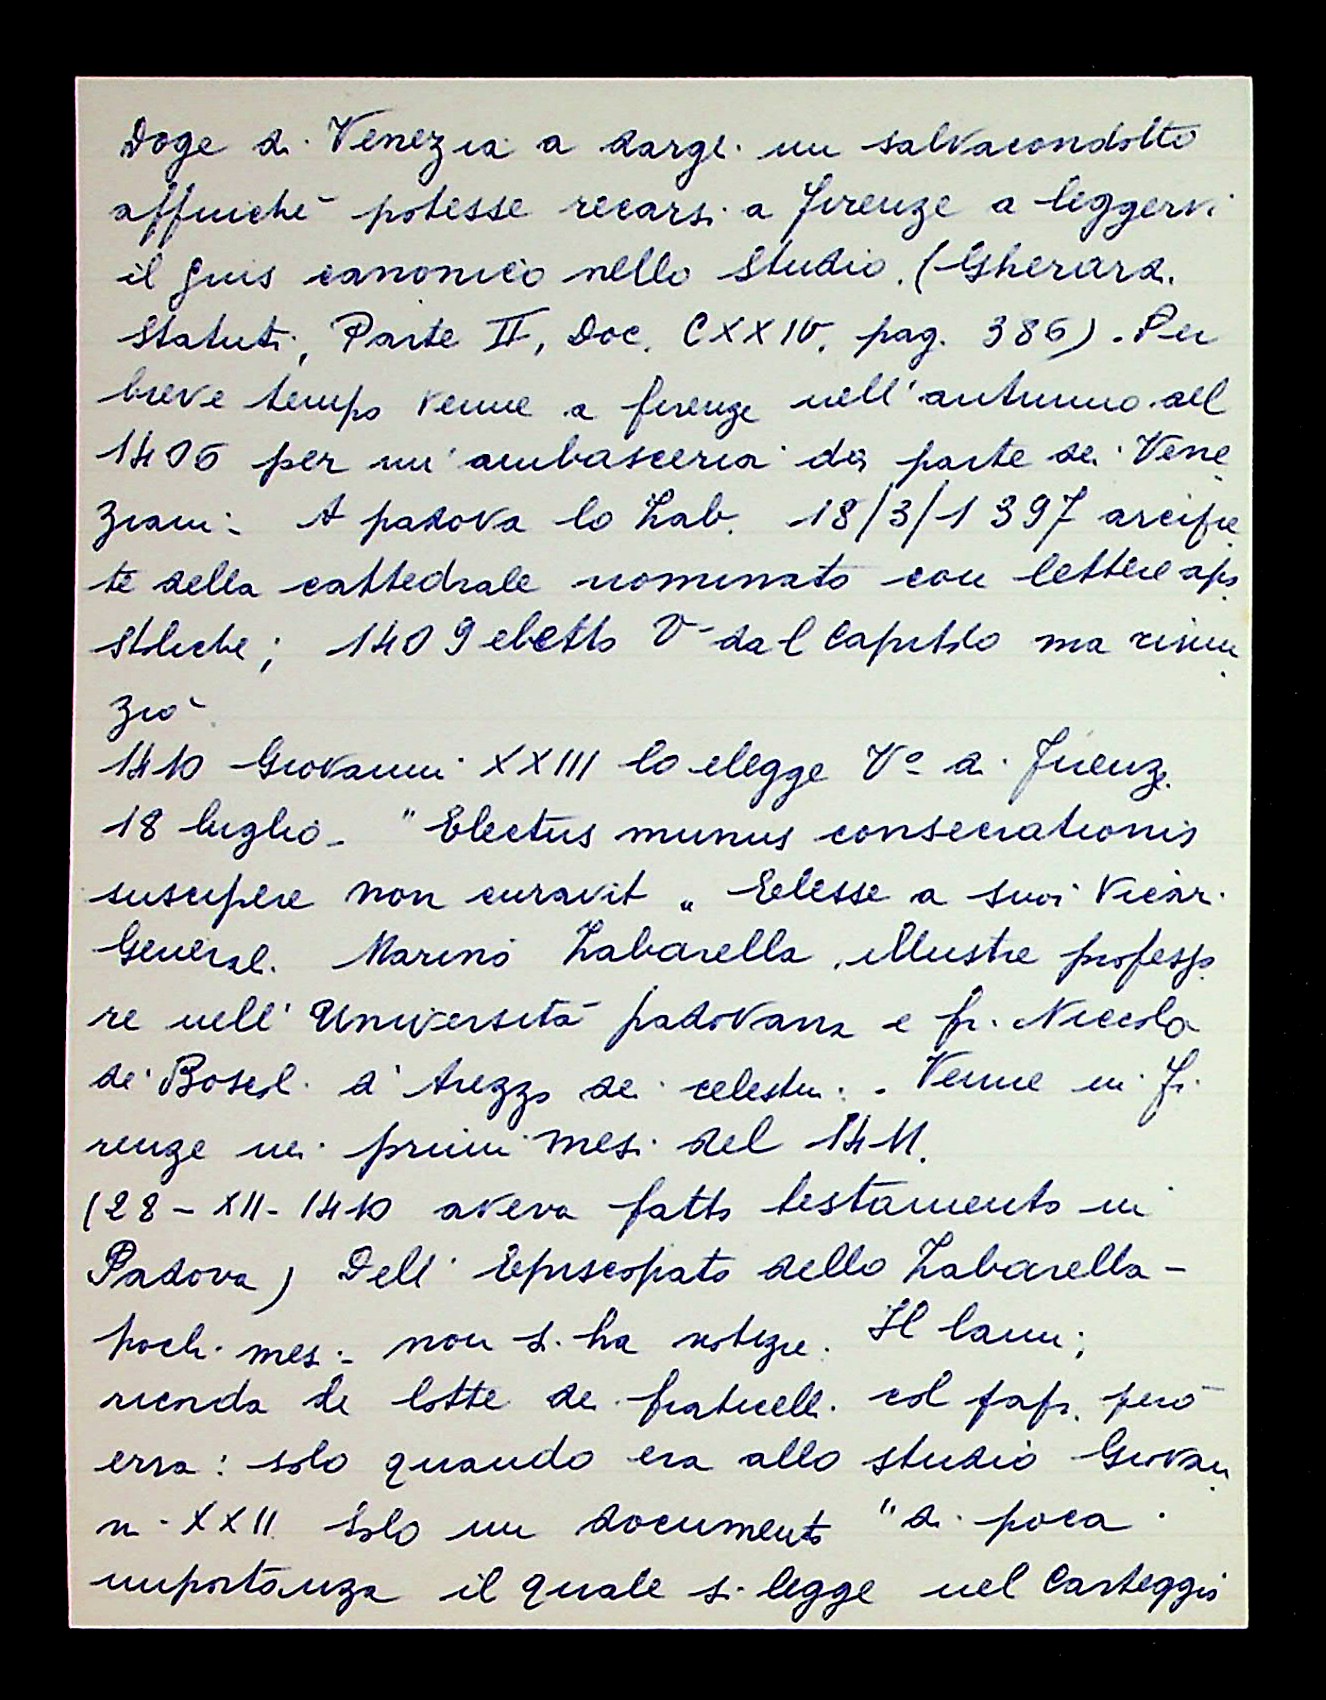 Doge di Venezia a dargli un salvacondotto
affinché potesse recarsi a Firenze a leggervi
il gius canonico nello Studio. (Gherardi
Statuti, Parte II, Doc. CXXIV, pag. 386). Per
breve tempo venne a Firenze nell'autunno del
1406 per un'ambasceria da parte dei Vene
ziani. A padova lo Zab. 18/3/1397 arcipre
te della cattedrale nominato con lettere apo
stoliche; 1409 eletto V- dal Capitolo ma rinun
ziò
1410 Giovanni XXIII lo elegge Vº di Firenze
18 luglio - "Electus munus consecrationis
suscipere non curavit" Elesse a suoi Vicari
Generali Marino Zabarella, illustre professo
re nell'Università padovana e fr. Niccolo
de' Boscoli d'Arezzo dei celestini. Venne in Fi
renze nei primi mesi del 1411.
(28-XII-1410 aveva fatto testamento in
Padova) Dell'Episcopato dello Zabarella -
pochi mesi - non si ha notizie. Il Lami;
ricorda le lotte dei fraticelli col papa però
erra: solo quando era allo studio Giovan
ni XXII. Solo un documento "di poca
importanza il quale si legge nel Carteggio